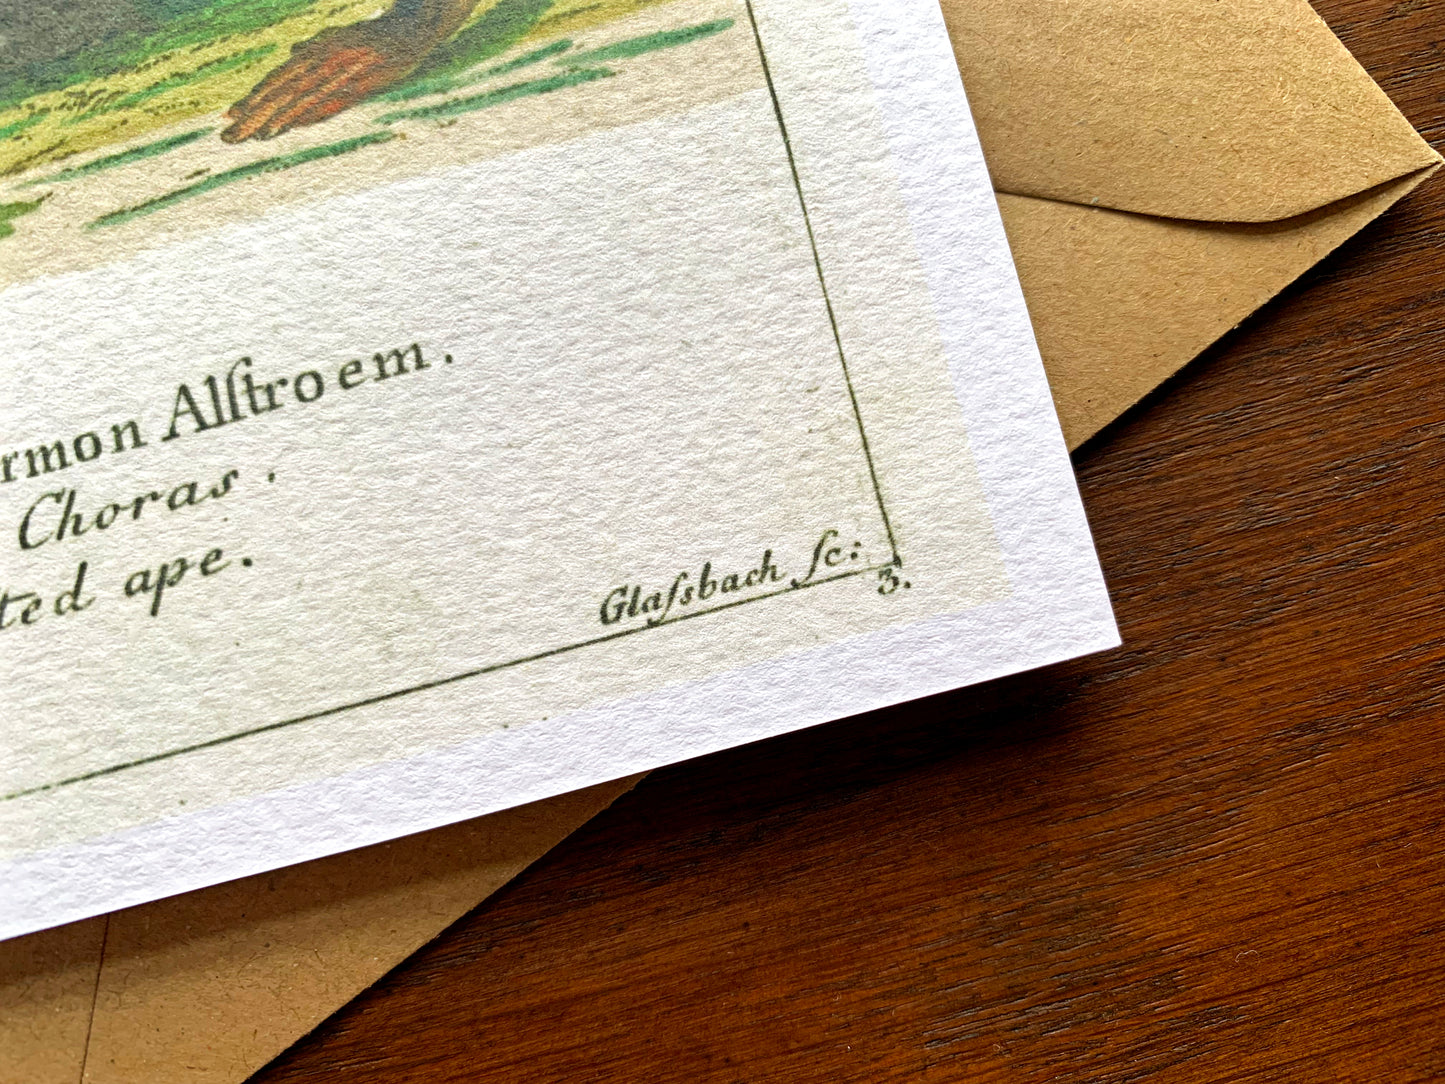 rmon Alſtroem.
Choras.
ted ape.
Glaſsbach ſc:
3.